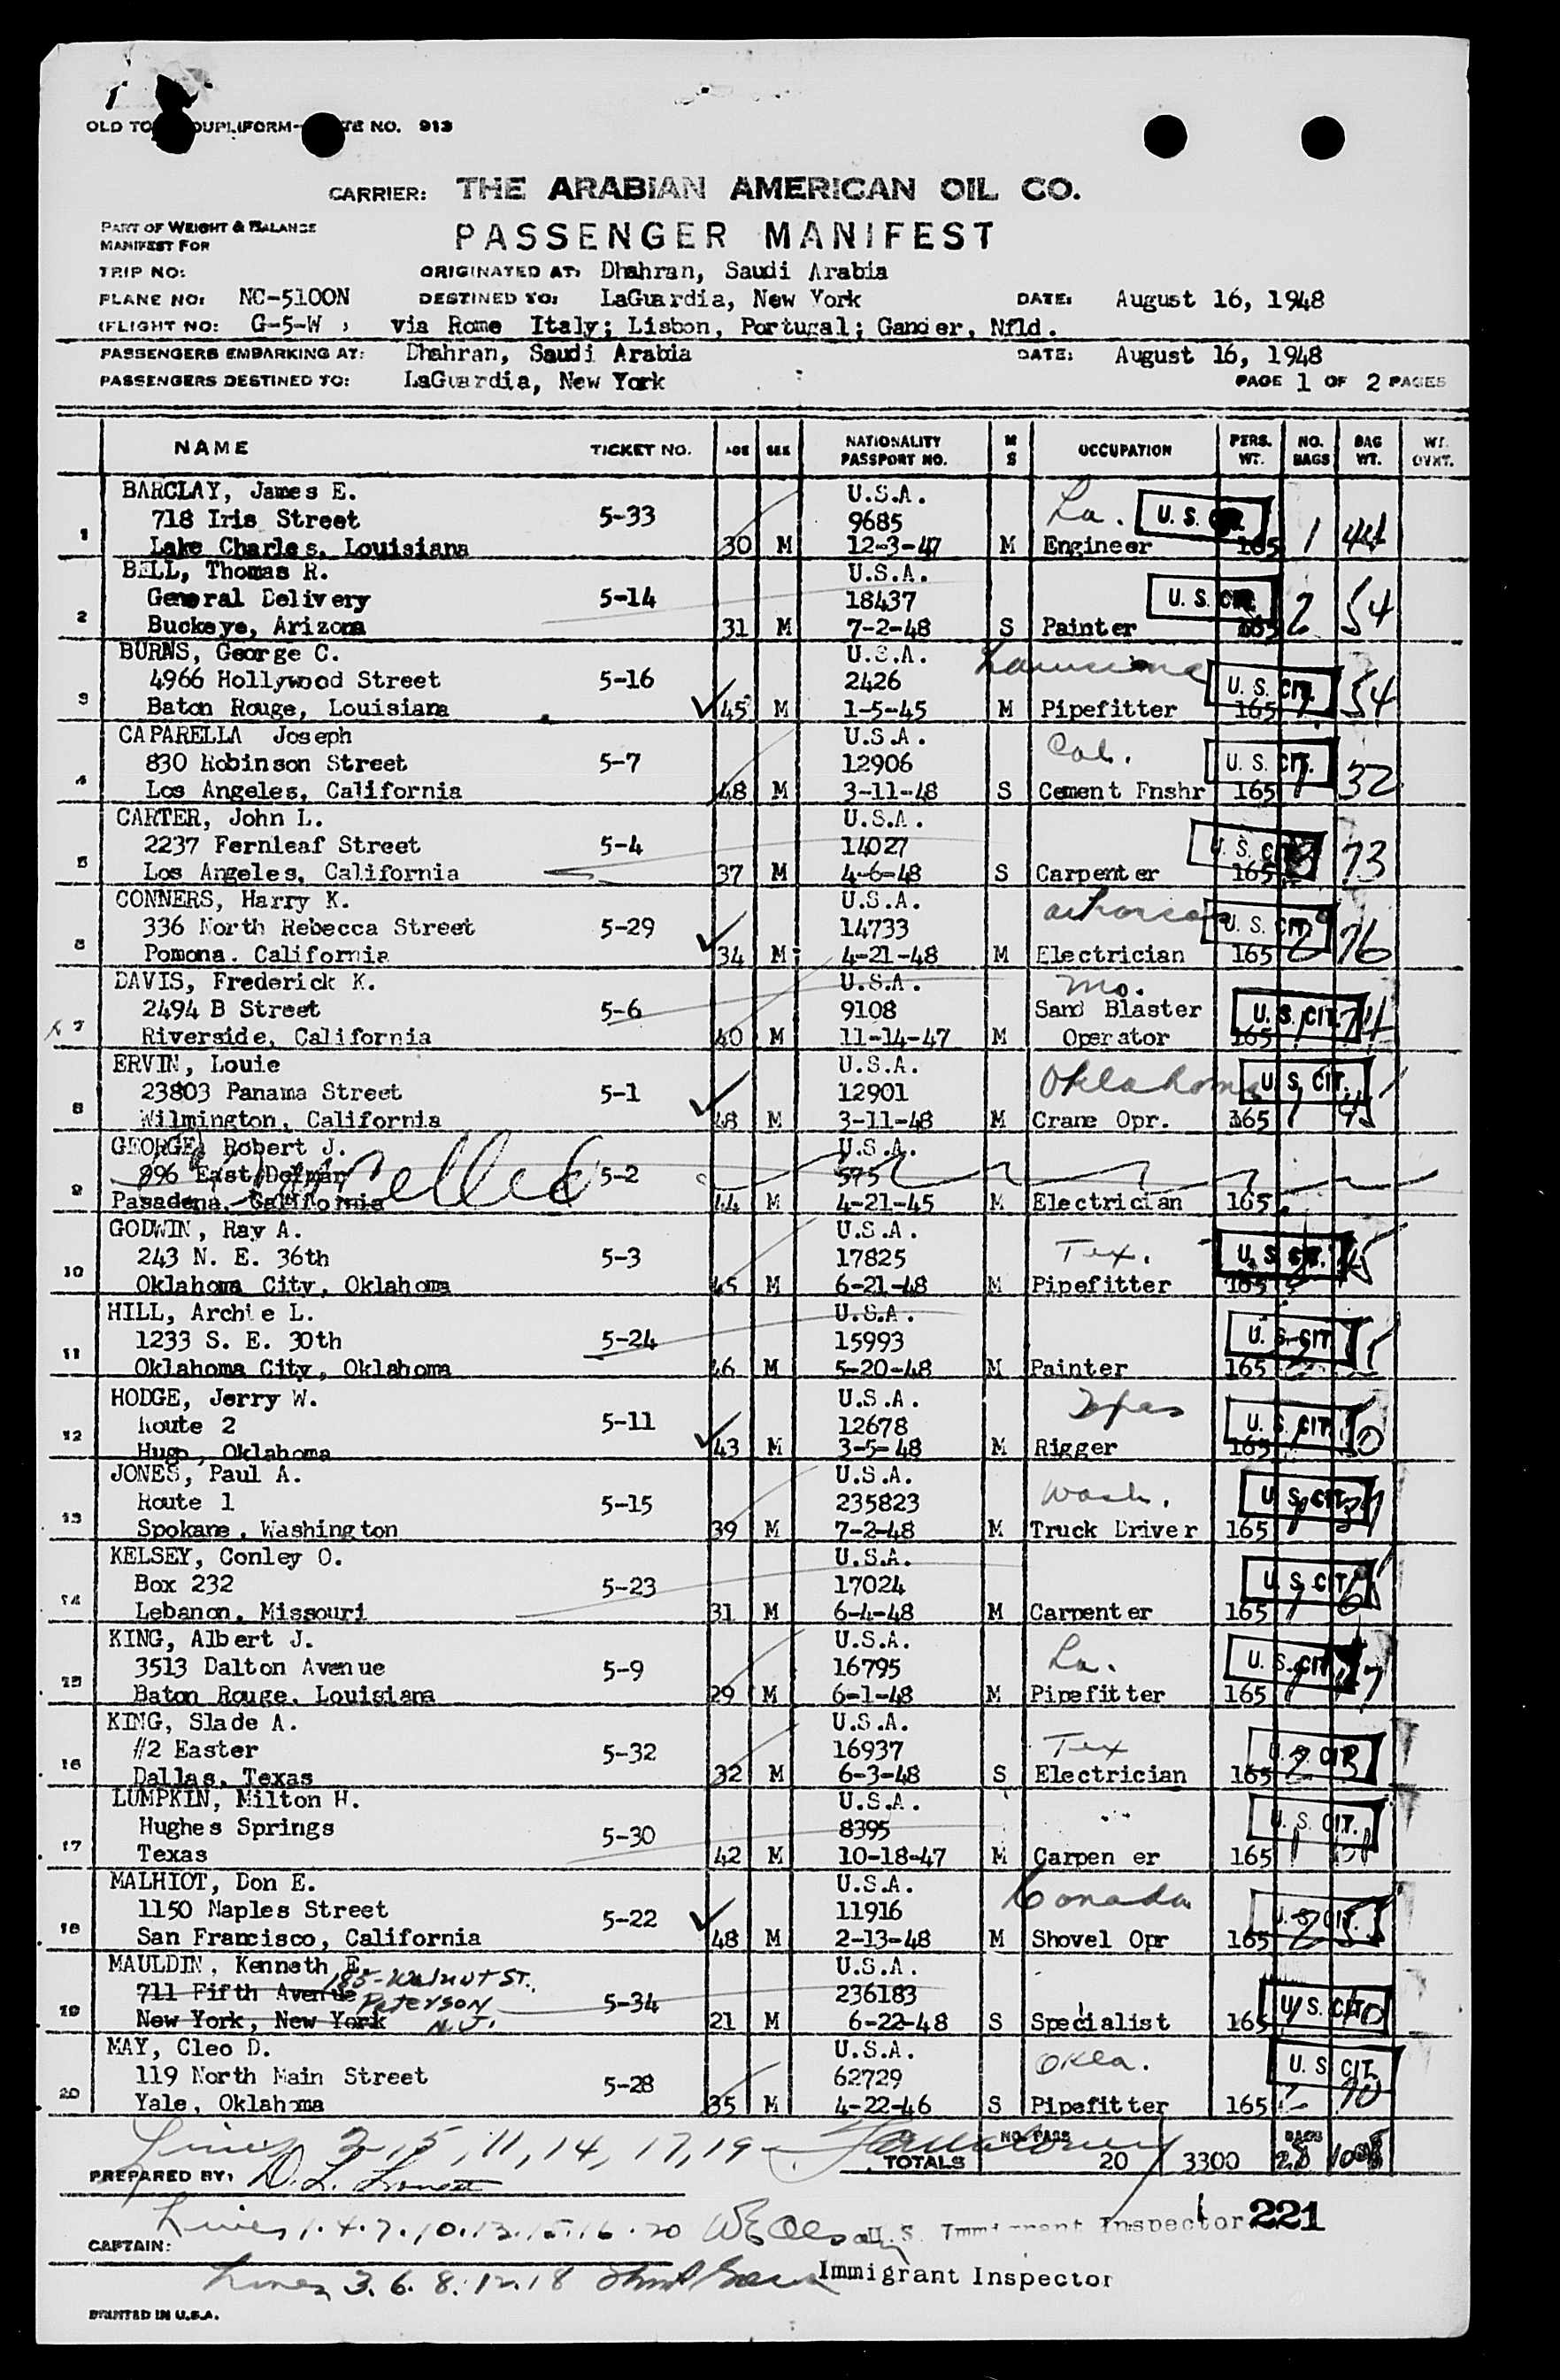 OLD TO DUPLIFORM- TE NO. 913
CARRIER: THE ARABIAN AMERICAN OIL CO.
PART OF WEIGHT & BALANCE
MANIFEST FOR
PASSENGER MANIFEST
TRIP NO: ORIGINATED AT: Dhahran, Saudi Arabia
PLANE NO: NC-5100N DESTINED TO: LaGuardia, New York DATE: August 16, 1948
(FLIGHT NO: G-5-W ) via Rome Italy; Lisbon, Portugal; Gander, Nfld.
PASSENGERS EMBARKING AT: Dhahran, Saudi Arabia DATE: August 16, 1948
PASSENGERS DESTINED TO: LaGuardia, New York PAGE 1 OF 2 PAGES
NAME TICKET NO. AGE SEX NATIONALITY PASSPORT NO. M S OCCUPATION PERS. WT. NO. BAGS BAG WT. WT. OVRT.
BARCLAY, James E. U.S.A. La. U. S. CIT.
718 Iris Street 5-33 9685
1 Lake Charles, Louisiana 30 M 12-3-47 M Engineer 165 1 44
BELL, Thomas R. U.S.A.
General Delivery 5-14 18437 U. S. CIT.
2 Buckeye, Arizona 31 M 7-2-48 S Painter 165 2 54
BURNS, George C. U.S.A. Louisiana
4966 Hollywood Street 5-16 2426 U. S. CIT.
3 Baton Rouge, Louisiana 45 M 1-5-45 M Pipefitter 165 1 54
CAPARELLA Joseph U.S.A. Cal.
830 Robinson Street 5-7 12906 U. S. CIT.
4 Los Angeles, California 48 M 3-11-48 S Cement Fnshr 165 1 32
CARTER, John L. U.S.A.
2237 Fernleaf Street 5-4 14027 U. S. CIT.
5 Los Angeles, California 37 M 4-6-48 S Carpenter 165 73
CONNERS, Harry K. U.S.A. Arkansas
336 North Rebecca Street 5-29 14733 U. S. CIT.
6 Pomona. California 34 M 4-21-48 M Electrician 165 2 76
DAVIS, Frederick K. U.S.A. Mo.
2494 B Street 5-6 9108 Sand Blaster U. S. CIT.
7 Riverside, California 40 M 11-14-47 M Operator 165 1
ERVIN, Louie U.S.A. Oklahoma
23803 Panama Street 5-1 12901 U. S. CIT.
8 Wilmington, California 48 M 3-11-48 M Crane Opr. 165 1
GEORGE, Robert J. U.S.A.
896 East Delmar Cancelled 5-2 575
9 Pasadena, California 44 M 4-21-45 M Electrician 165
GODWIN, Ray A. U.S.A. Tex.
243 N. E. 36th 5-3 17825 U. S. CIT.
10 Oklahoma City, Oklahoma 45 M 6-21-48 M Pipefitter 165
HILL, Archie L. U.S.A.
1233 S. E. 30th 5-24 15993 U. S. CIT
11 Oklahoma City, Oklahoma 46 M 5-20-48 M Painter 165
HODGE, Jerry W. U.S.A. Texas
Route 2 5-11 12678 U. S. CIT.
12 Hugo, Oklahoma 43 M 3-5-48 M Rigger 165
JONES, Paul A. U.S.A. Wash.
Route 1 5-15 235823 U. S. CIT.
13 Spokane, Washington 39 M 7-2-48 M Truck Driver 165 1
KELSEY, Conley O. U.S.A.
Box 232 5-23 17024 U. S. CIT.
14 Lebanon, Missouri 31 M 6-4-48 M Carpenter 165 1
KING, Albert J. U.S.A. La.
3513 Dalton Avenue 5-9 16795 U. S. CIT
15 Baton Rouge, Louisiana 29 M 6-1-48 M Pipefitter 165 1
KING, Slade A. U.S.A. Tex
#2 Easter 5-32 16937 U. S. CIT
16 Dallas, Texas 32 M 6-3-48 S Electrician 165 2
LUMPKIN, Milton H. U.S.A.
Hughes Springs 5-30 8395 U. S. CIT.
17 Texas 42 M 10-18-47 M Carpen er 165 1
MALHIOT, Don E. U.S.A. Canada
1150 Naples Street 5-22 11916 U. S. CIT.
18 San Francisco, California 48 M 2-13-48 M Shovel Opr 165 2
MAULDIN, Kenneth E. U.S.A.
711 Fifth Avenue 185-Walnut ST. Peterson 5-34 236183 U. S. CIT
19 New York, New York N.J. 21 M 6-22-48 S Specialist 165
MAY, Cleo D. U.S.A. Okla.
119 North Main Street 5-28 62729 U. S. CIT.
20 Yale, Oklahoma 35 M 4-22-46 S Pipefitter 165 2 70
Lines 2, 5, 11, 14, 17, 19 NO. PASS BAGS
TOTALS 20 3300 28
PREPARED BY: D. L.
Lines 1. 4. 7. 10. 13. 15. 16. 20 U. S. Immigrant Inspector 221
CAPTAIN:
Lines 3. 6. 8. 12. 18 Immigrant Inspector
PRINTED IN U.S.A.